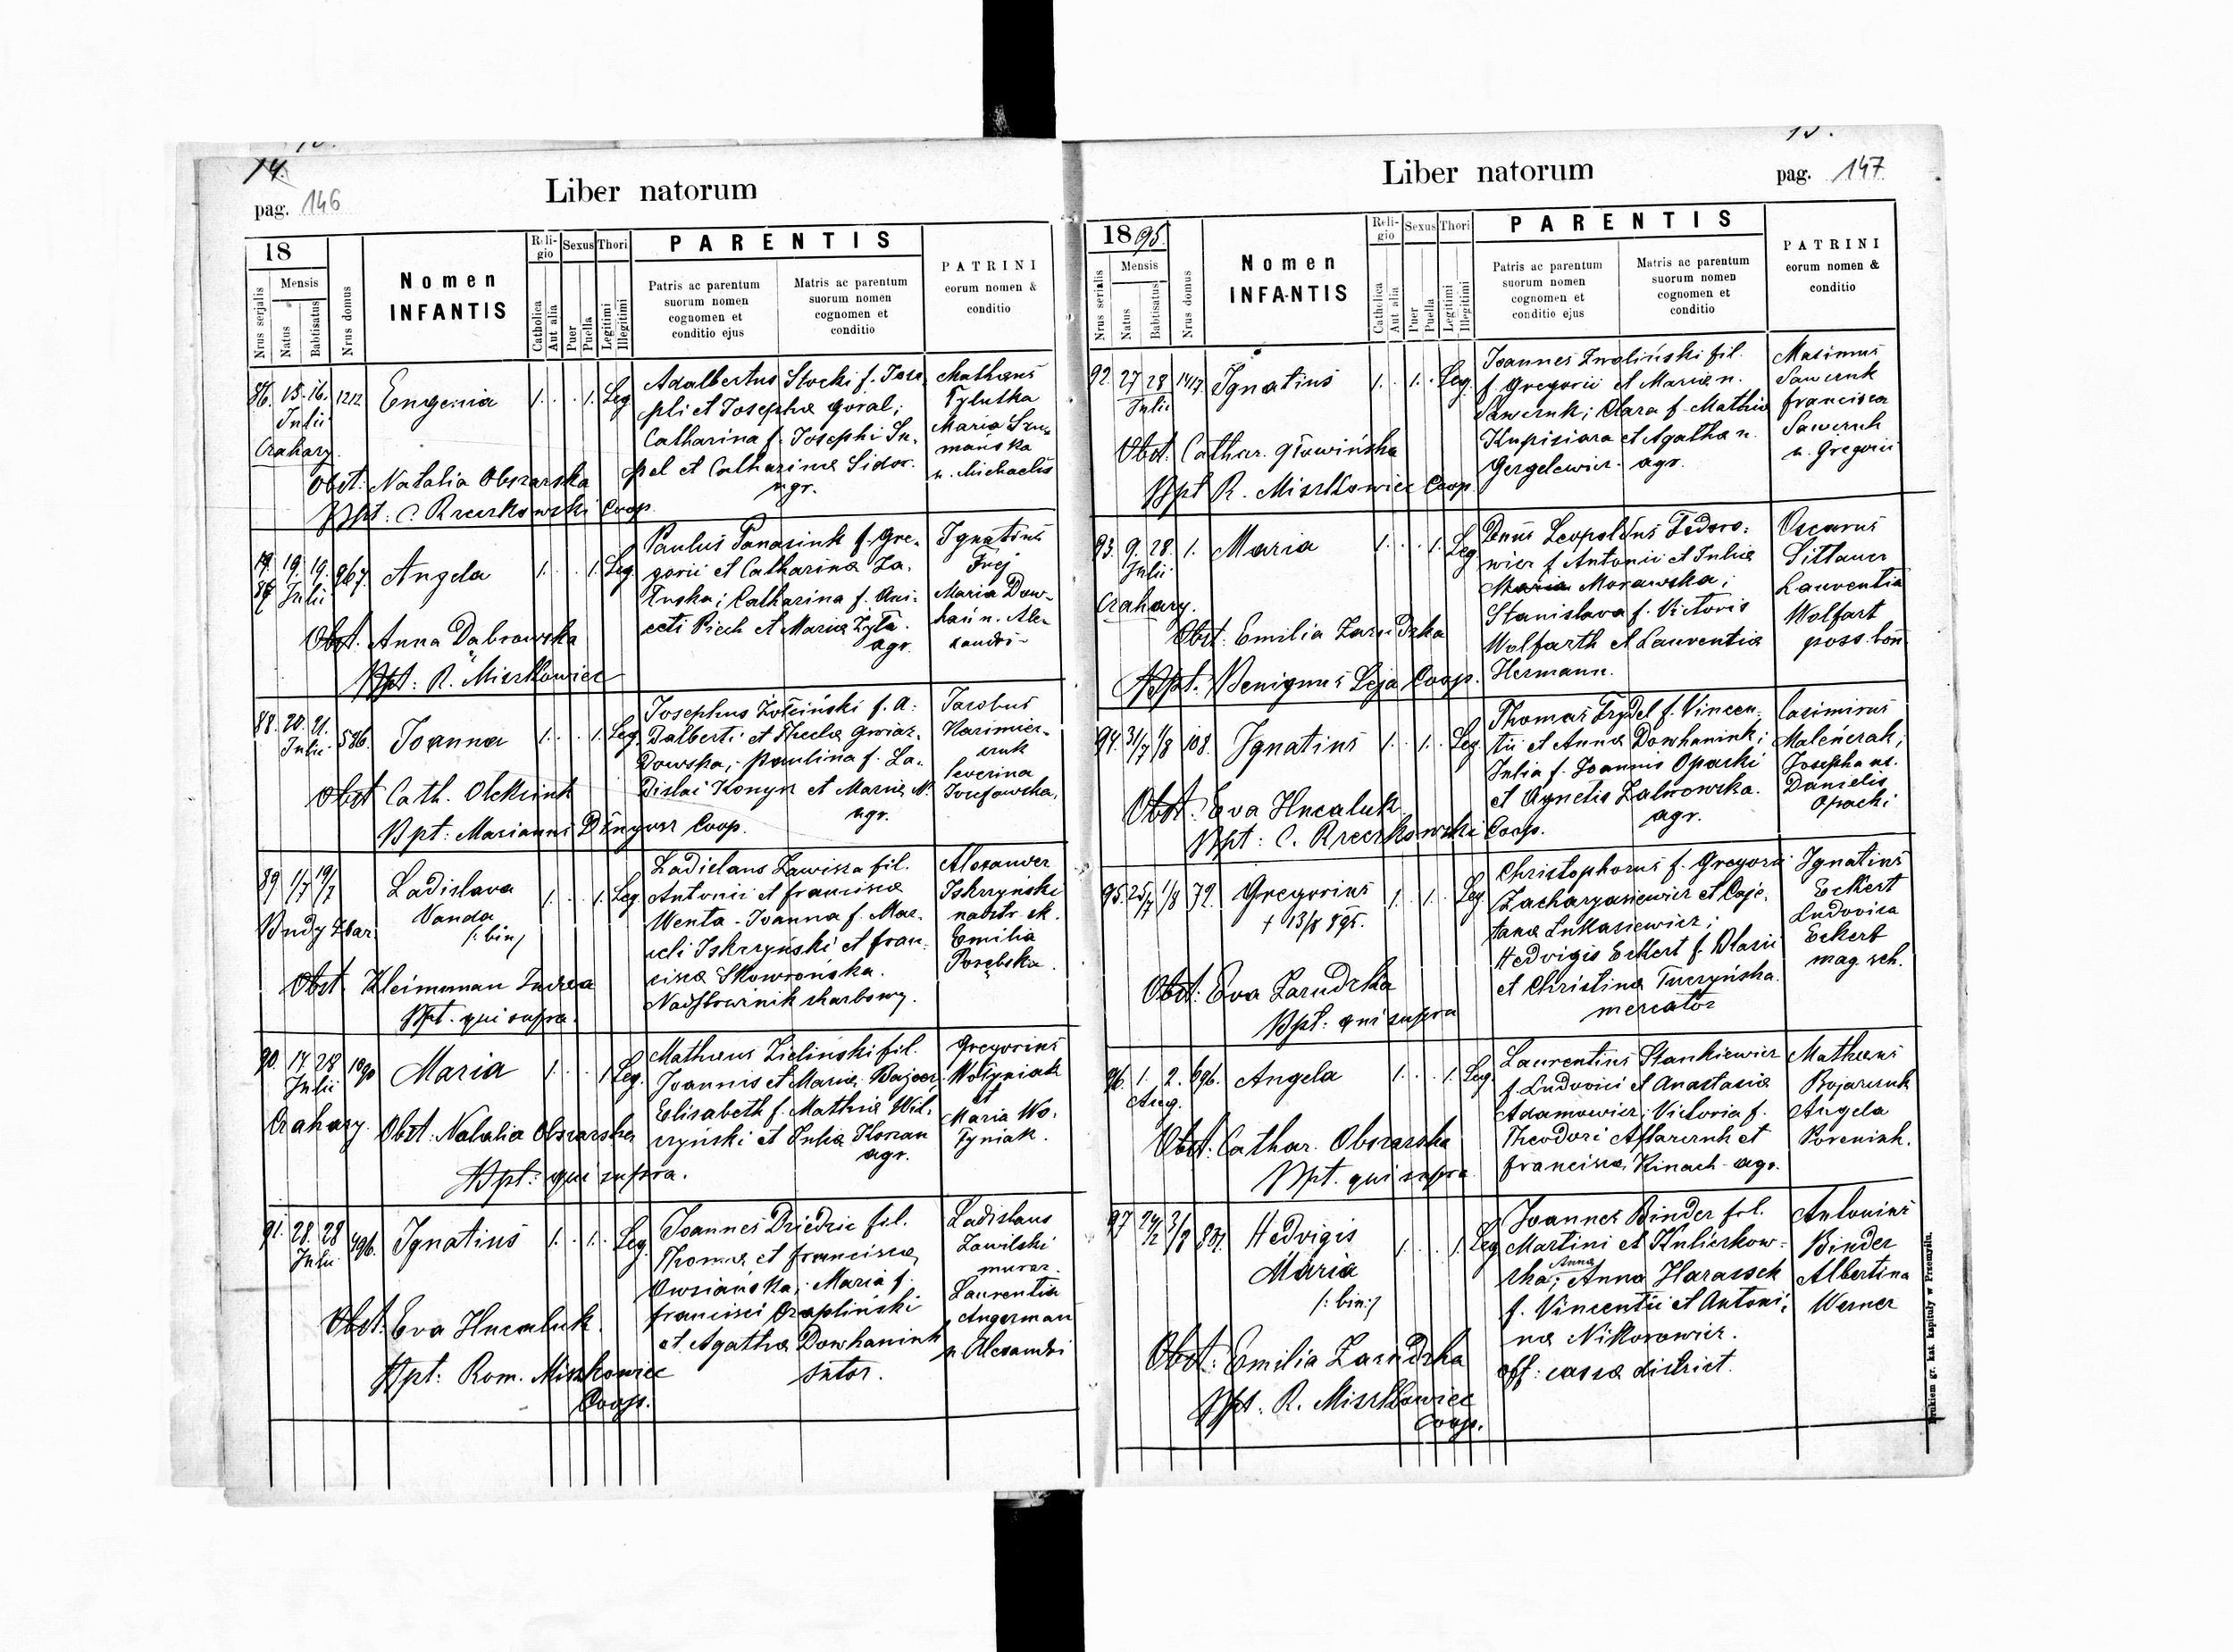 14.
pag. 146
Liber natorum
18
Nrus serjalis
Mensis
Natus
Babtisatus
Nrus domus
Nomen
INFANTIS
Reli-
gio
Catholica
Aut alia
Sexus
Puer
Puella
Thori
Legitimi
Illegitimi
PARENTIS
Patris ac parentum
suorum nomen
cognomen et
conditio ejus
Matris ac parentum
suorum nomen
cognomen et
conditio
PATRINI
eorum nomen &
conditio
86. 15. 16. 1212 Eugenia 1. . . 1. Leg
Julii
Czahary.
Obst: Natalia Obszarska
Bpt: C. Rzeczkowski Coop.
Adalbertus Stocki f. Jose
phi et Josepha Góral;
Catharina f. Josephi Su-
pel et Catharina Sidor.
agr.
Mathaeus
Tylutka
Maria Szu-
mańska
u. Michaelis
87 19. 19. 967. Angela 1. . . 1. Leg.
Julii
Obst. Anna Dąbrowska
Bpt: R. Miszkowiec
Paulus Panasiuk f. Gre-
gorii et Catharina Za-
łuska; Catharina f. Ani-
ceti Piech et Maria Zyła.
agr.
Ignatius
Frej
Maria Dow-
hań u. Ale-
xandri
88. 20. 21. 586. Joanna 1. . . 1. Leg.
Julii
Obst Cath. Oleksiuk
Bpt: Marianus Dżugosz Coop.
Josephus Żółciński f. A-
dalberti et Thecla Gwiaz-
dowska; Paulina f. La-
dislai Konyk et Maria N.
agr.
Jacobus
Kazimier-
czuk
Severina
Józefowska.
89 1/7 19/7 Ladislava 1. . . 1. Leg.
Vanda
/: bin /
Budy Zbar.
Obst Kleinman Zudea
Bpt. qui supra.
Ladislaus Zawisza fil.
Antonii et Francisca
Wenta - Joanna f. Mar-
celi Iskrzyński et Fran-
cisca Skowrońska.
Nadstrażnik skarbowy.
Alexander
Iskrzyński
nadstr. sk.
Emilia
Porębska.
90. 17. 28 1090 Maria 1. . . 1 Leg.
Julii
Czahary. Obst: Natalia Obszarska
Bpt: qui supra.
Mathaeus Zieliński fil.
Joannis et Maria Bajcer
Elisabeth f. Mathia Wil-
czyński et Julia Koszan
agr.
Gregorius
Wołyniak
et
Maria Wo-
łyniak.
91. 28. 28 496. Ignatius 1. . 1. . Leg.
Julii
Obst. Eva Hucaluk.
Bpt: Rom. Miszkowiec
Coop.
Joannes Dziedzic fil.
Thoma et Francisca
Owsiańska; Maria f.
Francisci Czapliński
et Agatha Dowhaniuk
sutor.
Ladislaus
Zawilski
murar.
Laurentia
Angerman
u Alexandri
Liber natorum
pag. 147
1895.
Nrus serialis
Mensis
Natus
Babtisatus
Nrus domus
Nomen
INFANTIS
Reli-
gio
Catholica
Aut alia
Sexus
Puer
Puella
Thori
Legitimi
Illegitimi
PARENTIS
Patris ac parentum
suorum nomen
cognomen et
conditio ejus
Matris ac parentum
suorum nomen
cognomen et
conditio
PATRINI
eorum nomen &
conditio
92. 27 28 1417 Ignatius 1. . 1. . Leg.
Julii
Obst. Cathar. Głowińska
Bpt R. Miszkowiec Coop.
Joannes Zwoliński fil.
f. Gregorii et Maria n.
Sawczuk; Clara f. Mathia
Kupisiara et Agatha n.
Gergelewicz. agr.
Maximus
Sawczuk
Francisca
Sawczuk
u. Gregorii
93. 9. 28. 1. Maria 1. . . 1. Leg
Julii
Czahary.
Obst: Emilia Zarudzka
Bpt: Benignus Leja Coop.
Dnus Leopoldus Fedoro-
wicz f. Antonii et Julia
Maria Morawska;
Stanislava f. Victoris
Wolfarth et Laurentia
Hermann.
Oscarus
Sittauer
Laurentia
Wolfart
poss. bon
94. 31/7 1/8 108. Ignatius 1. . 1. . Leg.
Obst: Eva Hucaluk
Bpt: C. Rzeczkowski Coop.
Thomas Frydel f. Vincen-
tii et Anna Dowhaniuk;
Julia f. Joannis Opacki
et Agnetis Zalnowska.
agr.
Casimirus
Maleńczak;
Josepha ux.
Danielis
Opacki
95. 25/7 1/8 72. Gregorius 1. . 1. . Leg.
† 13/8 895.
Obst: Eva Zarudzka
Bpt: qui supra
Christophorus f. Gregorii
Zacharyasiewicz et Caje-
tana Łukasiewicz;
Hedvigis Eckert f. Blasii
et Christina Tuczyńska.
mercator
Ignatius
Eckert
Ludovica
Eckert
mag. sch.
96. 1. 2. 696. Angela 1. . . 1. Leg.
Aug.
Obst: Cathar. Obszarska
Bpt. qui supra
Laurentius Stankiewicz
f. Ludovici et Anastasia
Adamowicz; Victoria f.
Theodori Aftarczuk et
Francisca Kinach agr.
Mathaeus
Bojarczuk
Angela
Poreniuk.
97 24/2 3/8 831. Hedvigis 1. . . 1. Leg
Maria
/: bin :/
Obst: Emilia Zarudzka
Bpt: R. Miszkowiec
Coop.
Joannes Binder fil.
Martini et Kuliczkow-
ska; Anna Harassek
Anna
f. Vincentii et Antoni-
na Nikorowicz.
off: cassa district.
Antonius
Binder
Albertina
Werner
Drukiem gr. kat kapituły w Przemyślu.